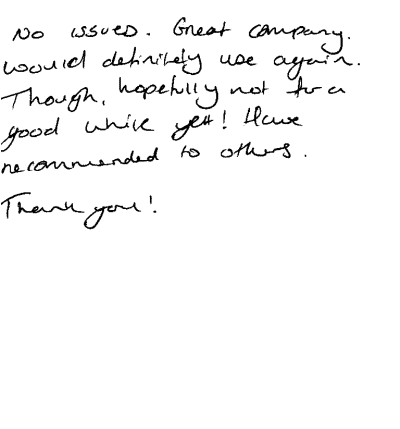 No issues. Great company.
Would definitely use again.
Though, hopefully not for a
good while yet! Have
recommended to others.
Thank you!